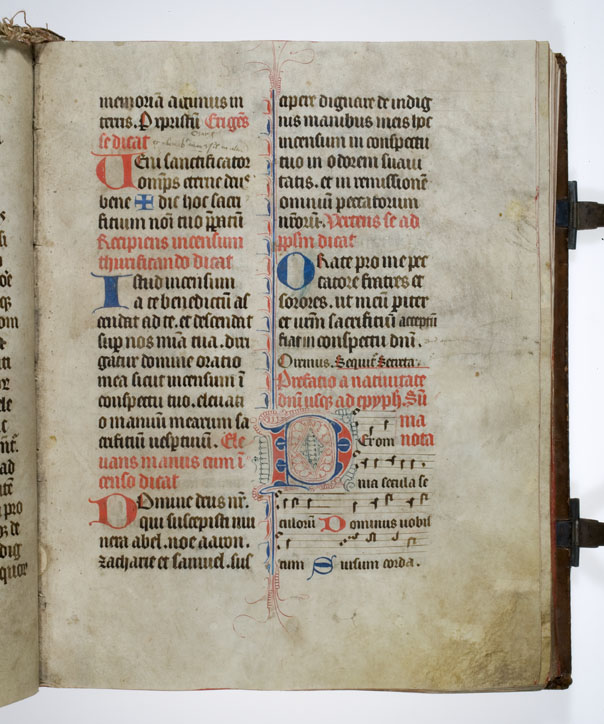 memoriā agimus in
terris. P xpristū Erigēs
se dicat
Ueni sanctificator
omps eterne deus
bene ✠ dic hoc sacri
ficium noī tuo p̄patū
Recipiens incensum
thurificando dicat
Istud incensum
a te benedictū as
cendat ad te. et descendat
sup nos mīa tua. diri
gatur domine oratio
mea sicut incensum ī
conspectu tuo. eleuati
o manuū mearum sa
crificiū uesptinū. Ele
uans manus cum ī
censo dicat
Domine deus nr̄.
qui suscepisti mu
nera abel. noe aaron.
zacharie et samuel. sus
cipere dignare de indig
nis manibus meis hoc
incensum in conspectu
tuo in odorem suaui
tatis. et in remissionē
omniū peccatorum
nr̄orū. Vertens se ad
ppīm dicat
Orate pro me pec
catore fratres et
sorores. ut meū piter
et urm̄ sacrificiū acceptū
fiat in conspectu dnī.
Oremus. Sequit̄ Secreta.
Prefatio a natiuitate
dnī usq; ad epyph. Sū
ma
nota
Per om
nia secula se
culorū Dominus uobis
cum Sursum corda.